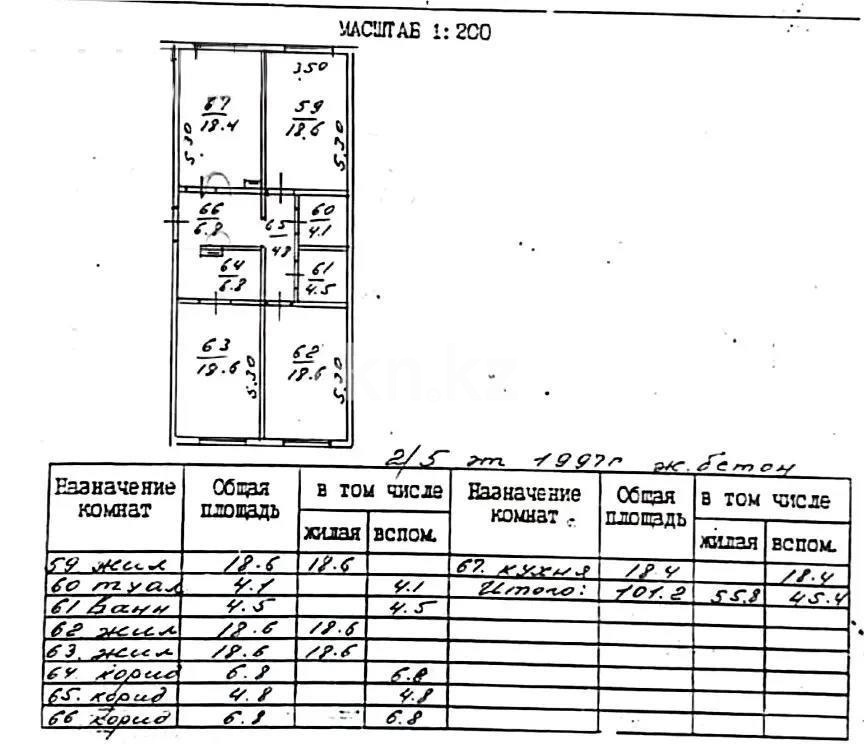 МАСШТАБ 1:200
3.50
67
18.4
5.30
59
18.6
5.30
66
6.8
65
4.8
60
4.1
64
6.8
61
4.5
63
18.6
5.30
62
18.6
5.30
kn.kz
2/5 эт 1997г ж.бетон
Назначение комнат Общая площадь в том числе Назначение комнат Общая площадь в том числе
жилая вспом. жилая вспом.
59 жил 18.6 18.6 67. кухня 18.4 18.4
60 туал 4.1 4.1 Итого: 101.2 55.8 45.4
61 Ванн 4.5 4.5
62 жил 18.6 18.6
63. жил 18.6 18.6
64. корид 6.8 6.8
65. корид 4.8 4.8
66 корид 6.8 6.8